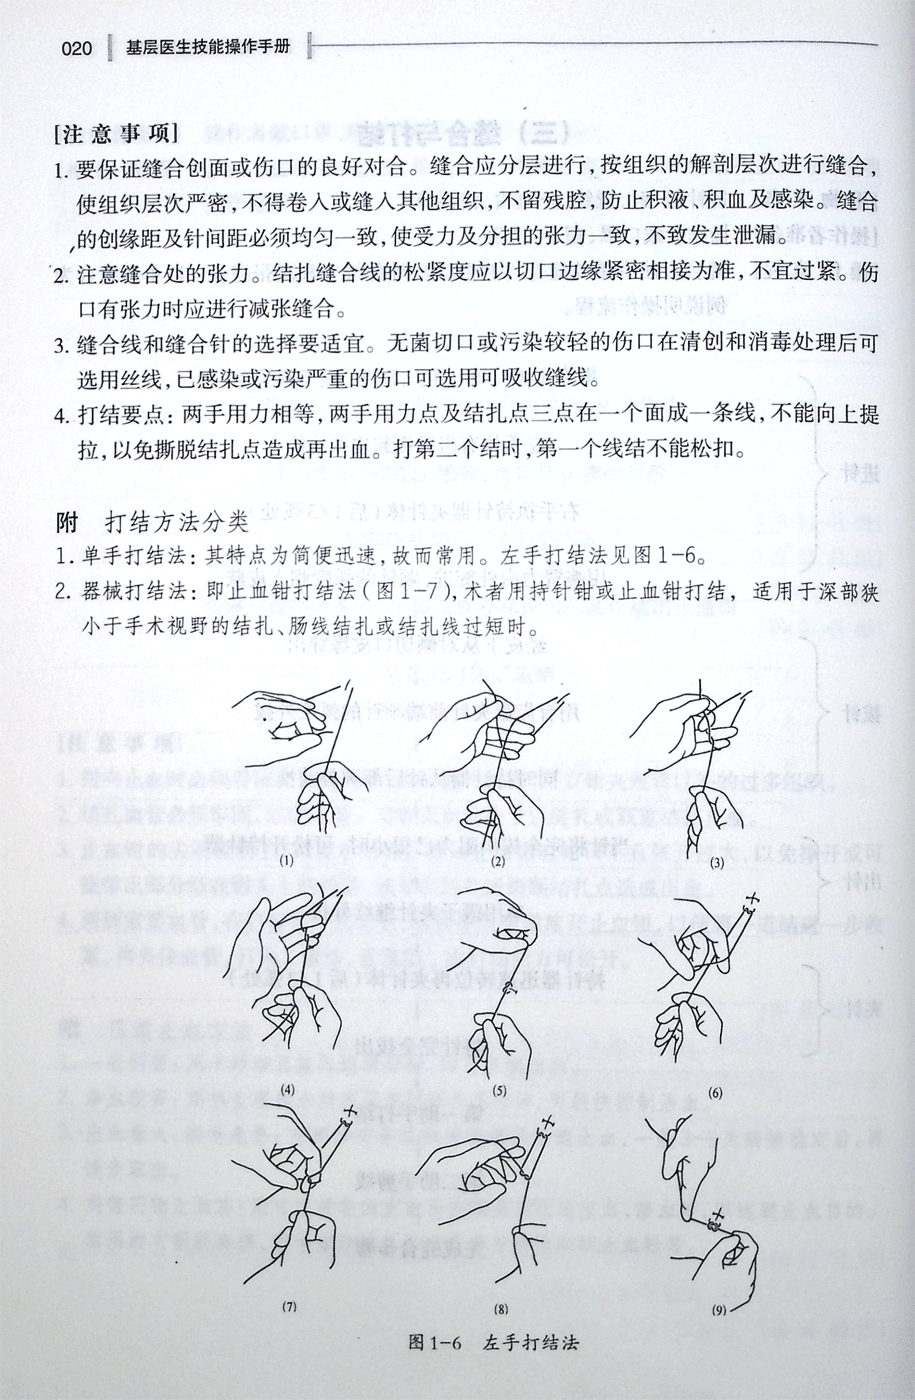 020 基层医生技能操作手册
[注意事项]
1. 要保证缝合创面或伤口的良好对合。缝合应分层进行,按组织的解剖层次进行缝合,
使组织层次严密,不得卷入或缝入其他组织,不留残腔,防止积液、积血及感染。缝合
的创缘距及针间距必须均匀一致,使受力及分担的张力一致,不致发生泄漏。
2. 注意缝合处的张力。结扎缝合线的松紧度应以切口边缘紧密相接为准,不宜过紧。伤
口有张力时应进行减张缝合。
3. 缝合线和缝合针的选择要适宜。无菌切口或污染较轻的伤口在清创和消毒处理后可
选用丝线,已感染或污染严重的伤口可选用可吸收缝线。
4. 打结要点:两手用力相等,两手用力点及结扎点三点在一个面成一条线,不能向上提
拉,以免撕脱结扎点造成再出血。打第二个结时,第一个线结不能松扣。
附 打结方法分类
1. 单手打结法:其特点为简便迅速,故而常用。左手打结法见图1-6。
2. 器械打结法:即止血钳打结法(图1-7),术者用持针钳或止血钳打结,适用于深部狭
小于手术视野的结扎、肠线结扎或结扎线过短时。
(1) (2) (3)
(4) (5) (6)
(7) (8) (9)
图1-6 左手打结法